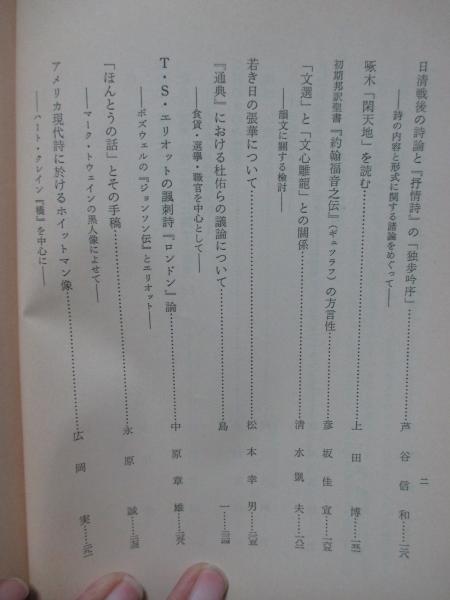 日清戦後の詩論と『抒情詩』の「独歩吟序」
――詩の内容と形式に関する諸論をめぐって――……芦谷信和……
啄木「閑天地」を読む……上田博……
初期邦訳聖書『約翰福音之伝』（ギュツラフ）の方言性……彦坂佳宣……
「文選」と「文心雕龍」との関係
――韻文に関する検討――……清水凱夫……
若き日の張華について……松本幸男……
『通典』における杜佑らの議論について
――食貨・選挙・職官を中心として――……島一……
T・S・エリオットの諷刺詩『ロンドン』論
――ボズウェルの『ジョンソン伝』とエリオット――……中原章雄……
「ほんとうの話」とその手稿
――マーク・トウェインの黒人像によせて――……永原誠……
アメリカ現代詩に於けるホイットマン像
――ハート・クレイン『橋』を中心に――……広岡実……
二